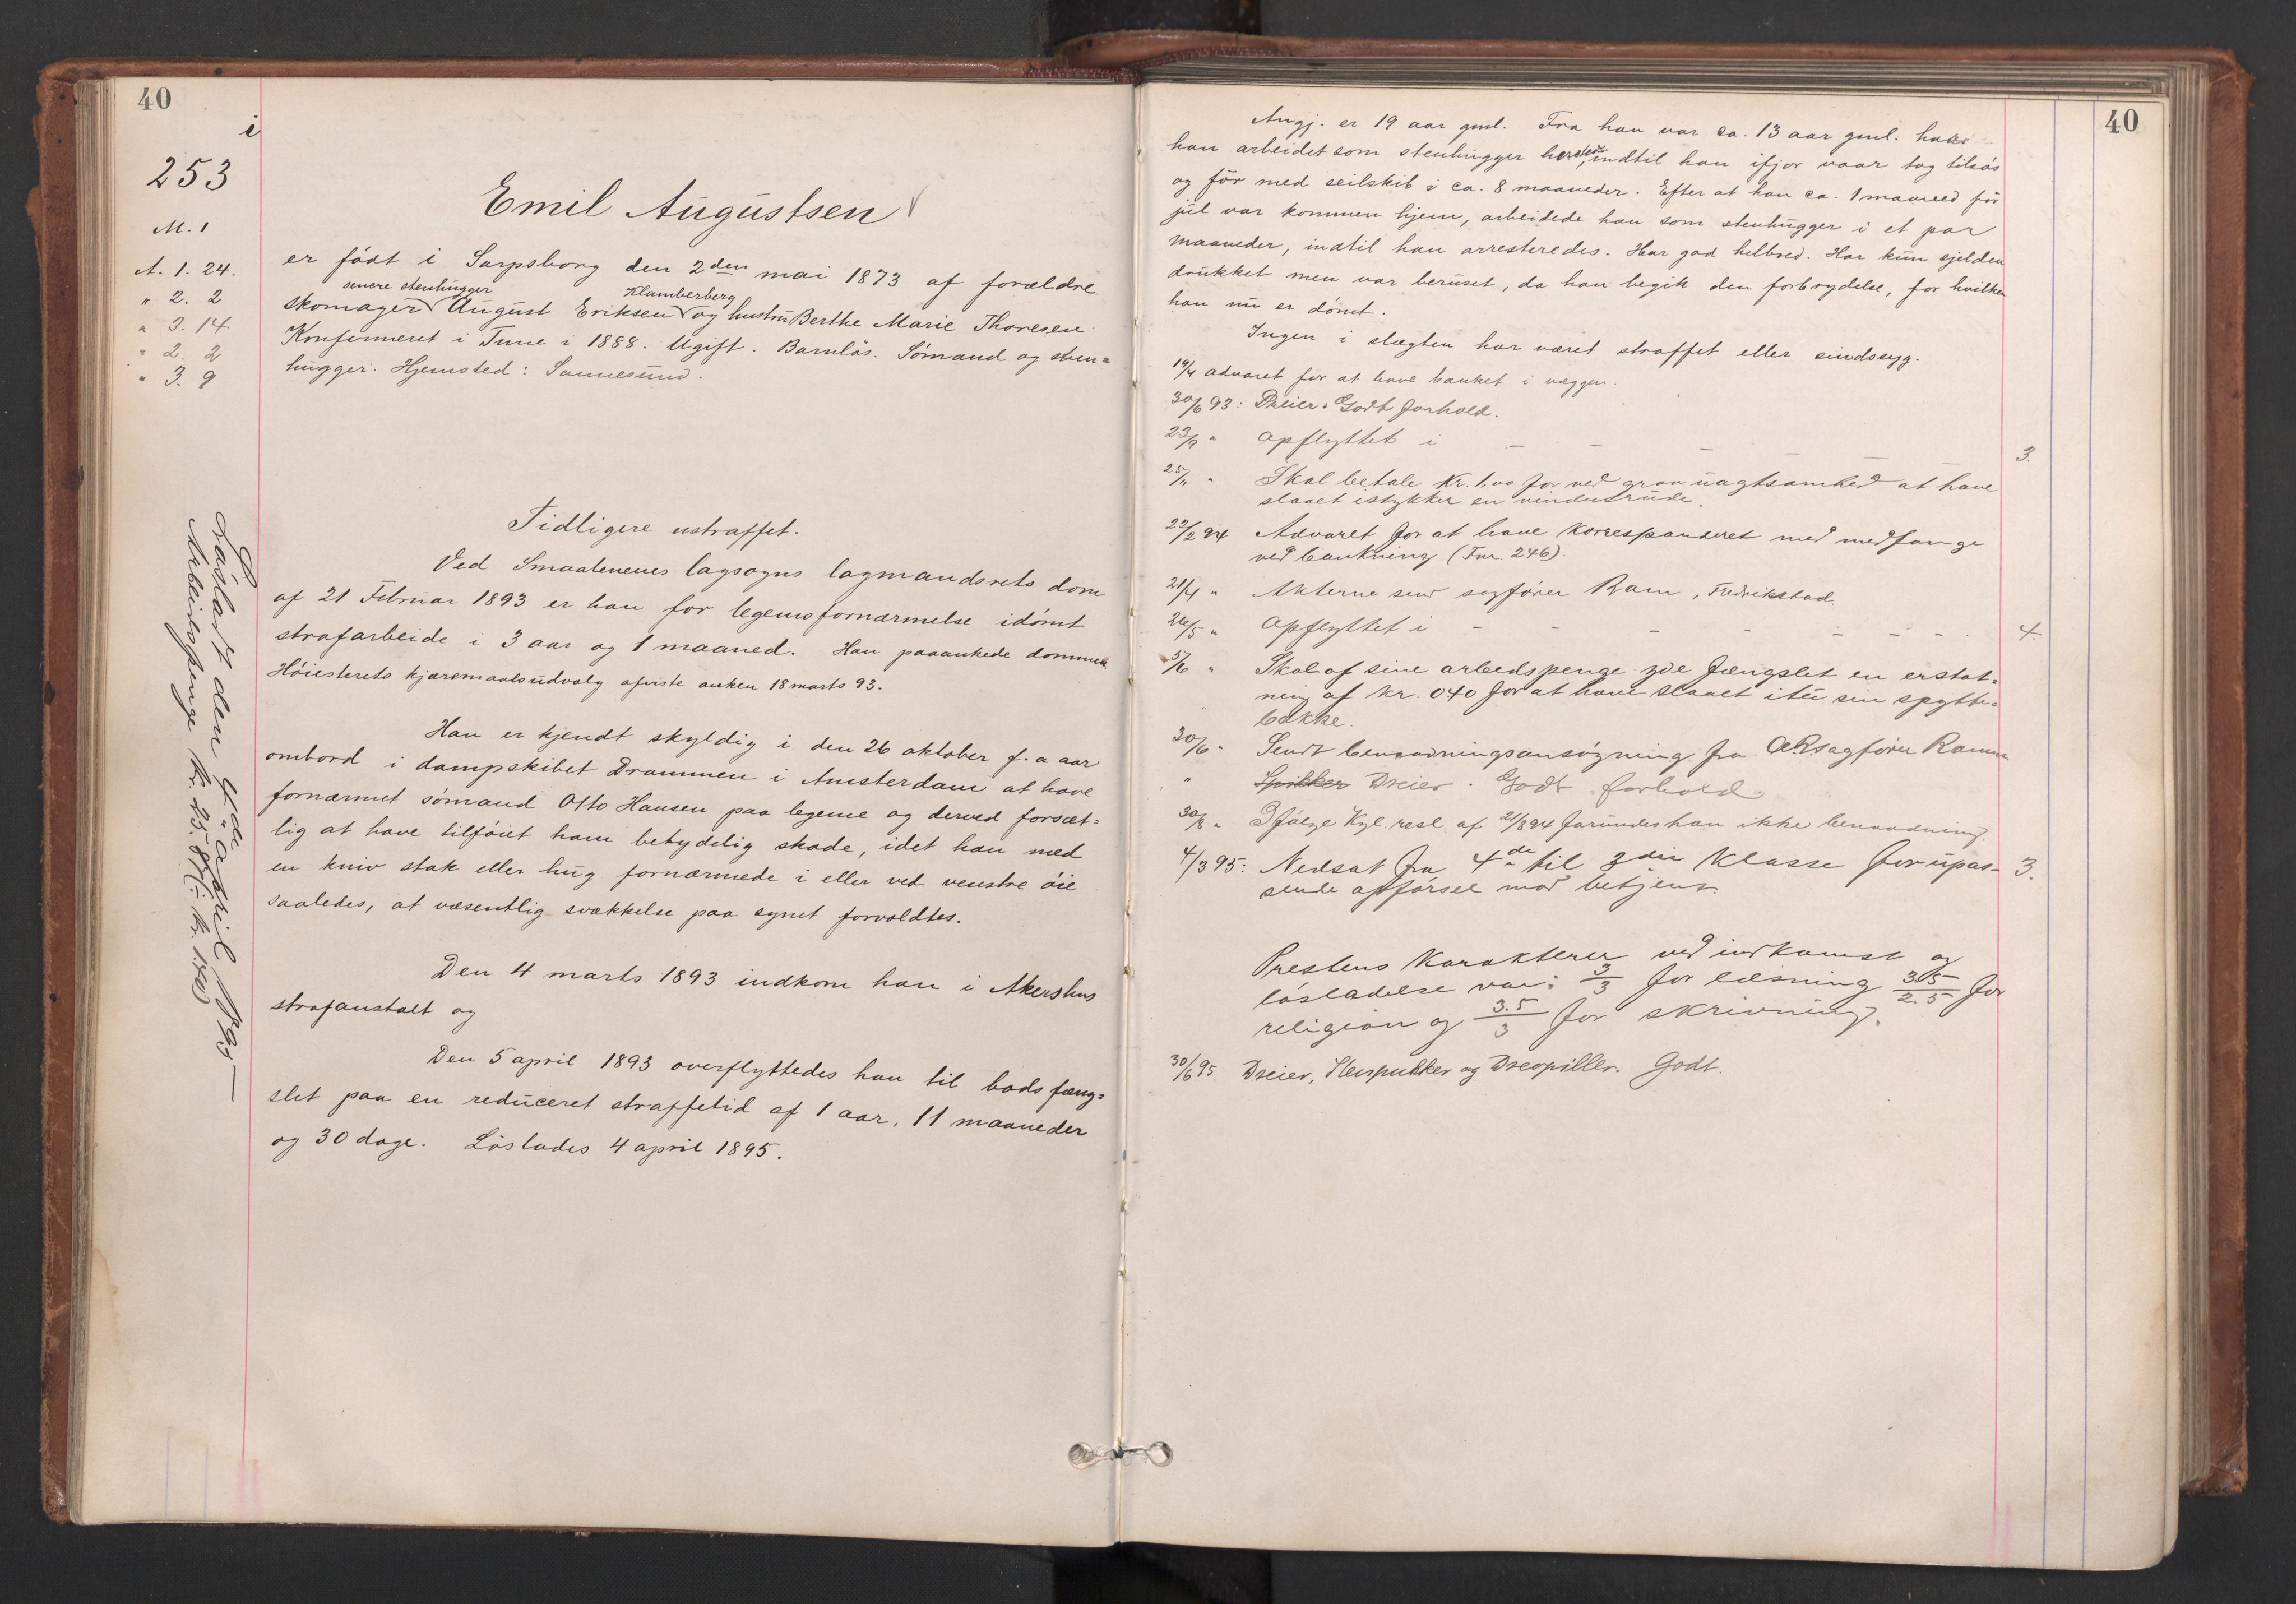 40
i
253
M. 1
A. 1. 24.
" 2. 2
" 3. 14
" 2. 2
" 3. 9
Emil Augustsen
er født i Sarpsborg den 2den mai 1873 af forældre
senere stenhugger Klamberberg
skomager August Eriksen og hustru Berthe Marie Thoresen
Konfirmeret i Tune i 1888. Ugift. Barnløs. Sømand og sten=
hugger. Hjemsted: Sannesund.
Tidligere ustraffet.
Ved Smaalenenes lagsogns lagmandsrets dom
af 21 Februar 1893 er han for legemsfornærmelse idømt
strafarbeide i 3 aar og 1 maaned. Han paaankede dommen
Høiesterets kjæremaalsudvalg afviste anken 18 marts 93.
Han er kjendt skyldig i den 26 oktober f. a aar
ombord i dampskibet Drammen i Amsterdam at have
fornærmet sømand Otto Hansen paa legeme og derved forsæt=
lig at have tilføiet ham betydelig skade, idet han med
en kniv stak eller hug fornærmede i eller ved venstre øie
saaledes, at væsentlig svækkelse paa synet forvoldtes.
Den 4 marts 1893 indkom han i Akershus
strafanstalt og
Den 5 april 1893 overflyttedes han til bodsfæng=
slet paa en reduceret straffetid af 1 aar, 11 maaneder
og 30 dage. Løslades 4 april 1895.
Løsladt den 4de april 1895
Arbeidspenge kr. 25.87
40
Angj. er 19 aar gml. Fra han var ca. 13 aar gml. har
han arbeidet som stenhugger hersteds, indtil han ifjor vaar tog tilsøs
og fór med seilskib i ca. 8 maaneder. Efter at han ca. 1 maaned før
jul var kommen hjem, arbeidede han som stenhugger i et par
maaneder, indtil han arresteredes. Har god helbred. Har kun sjelden
drukket men var beruset, da han begik den forbrydelse, for hvilken
han nu er dømt.
Ingen i slægten har været straffet eller sindssyg.
19/4 advaret for at have banket i væggen.
30/6 93: Dreier. Godt forhold.
23/9 " Opflyttet i — — — — — — 3.
25/11 " Skal betale Kr. 1.00 for ved grov uagtsomhed at have
slaaet istykker en vindusrude.
22/2 94 Advaret for at have korresponderet med medfange
ved bankning (Fnr 246).
21/4 " Akterne send sagfører Ram, Fredrikstad.
26/5 " Opflyttet i - - - - - - - 4.
5/6 " Skal af sine arbedspenge yde fængslet en erstat=
ning af kr. 040 for at have slaaet itu sin spytte=
bakke.
30/6 " Sendt benaadningsansøgning fra ORsagfører Ramm
" Spikker Dreier. Godt forhold.
30/8 " Ifølge Kgl. resl. af 21/8 94 forundes han ikke benaadning.
4/3 95: Nedsat fra 4de til 3die Klasse for upas- 3.
sende opførsel mod betjent.
Prestens Karakterer ved indkomst og
løsladelse var: 3/3 for læsning 3.5/2.5 for
religion og 3.5/3 for skrivning.
30/6 95 Dreier, Stenpukker og Drevpiller. Godt.